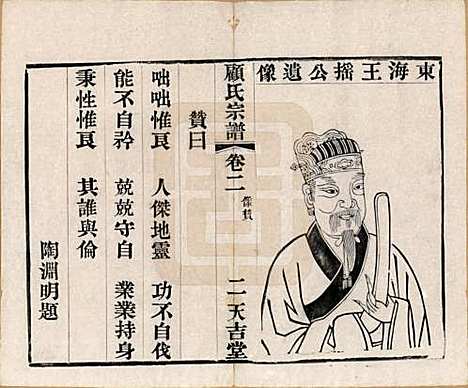 東海王摇公遺像
顧氏宗譜 卷二 像贊 二 天吉堂
贊曰
咄咄惟艮 人傑地靈 功不自伐
能不自矜 兢兢守自 業業持身
秉性惟艮 其誰與倫
陶淵明題